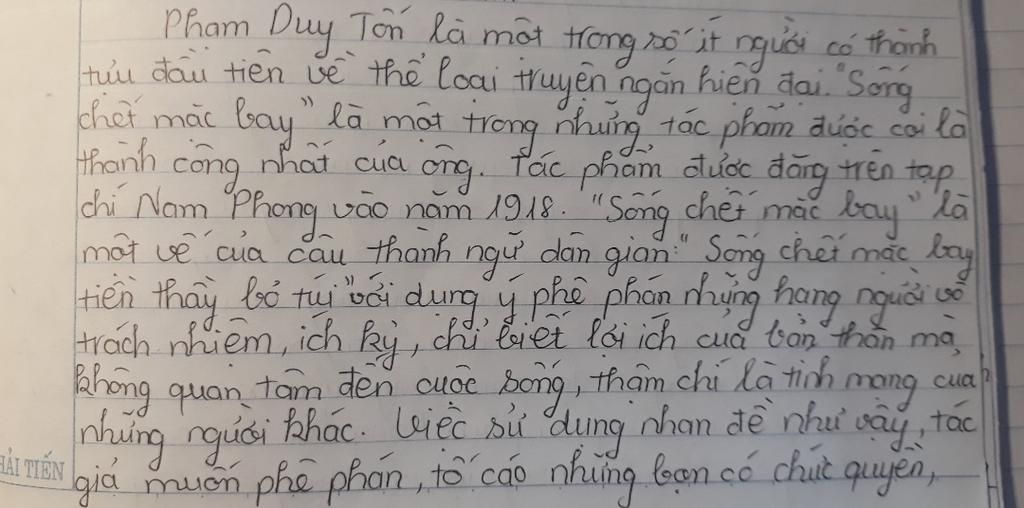 Phạm Duy Tốn là một trong số ít người có thành
tựu đầu tiên về thể loại truyện ngắn hiện đại. "Sống
chết mặc bay" là một trong những tác phẩm được coi là
thành công nhất của ông. Tác phẩm được đăng trên tạp
chí Nam Phong vào năm 1918. "Sống chết mặc bay" là
một vế của câu thành ngữ dân gian: "Sống chết mặc bay
tiền thầy bỏ túi" với dụng ý phê phán những hạng người vô
trách nhiệm, ích kỷ, chỉ biết lợi ích của bản thân mà
không quan tâm đến cuộc sống, thậm chí là tính mạng của
những người khác. Việc sử dụng nhan đề như vậy, tác
giả muốn phê phán, tố cáo những bọn có chức quyền,
HẢI TIẾN